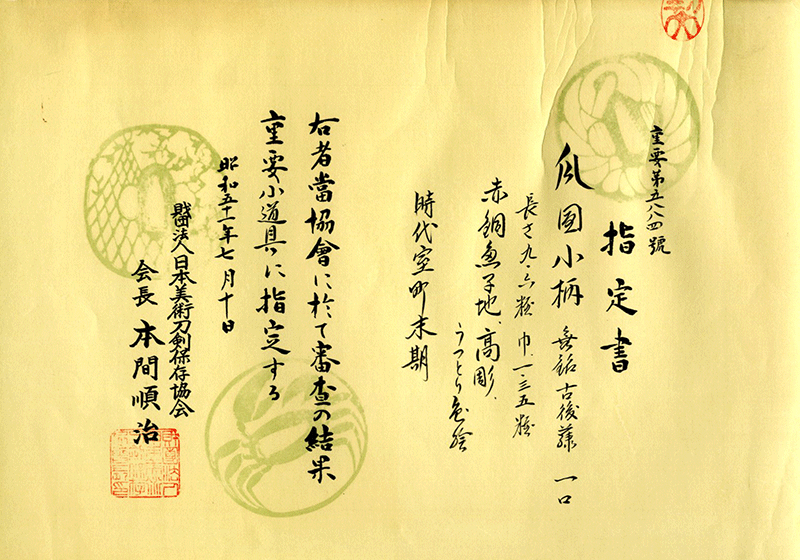 重要第五八八四號
指定書
瓜図小柄 無銘古後藤 一口
長さ九・六糎 巾一・三五糎
赤銅魚子地、高彫、
うっとり色絵
時代室町末期
右者當協會に於て審査の結果
重要小道具に指定する
昭和五十一年七月十日
財団法人日本美術刀剣保存協会
会長 本間順治